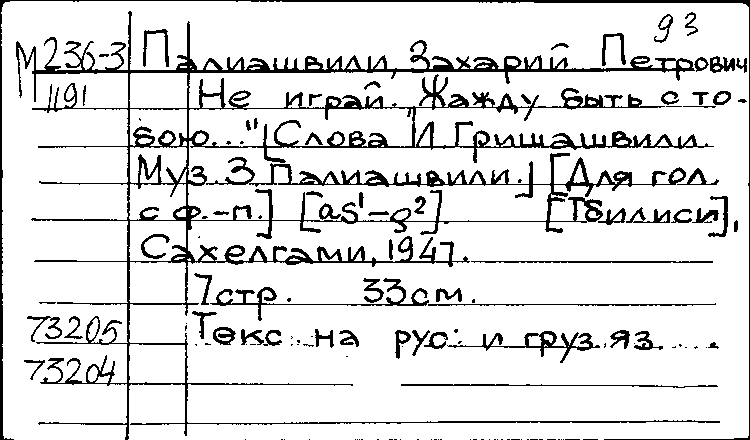 93
М 236-3 Палиашвили, Захарий Петрович
1191 Не играй. „Жажду быть с то-
бою..." [Слова И Гришашвили.
Муз. З. Палиашвили.] [Для гол.
с ф.-п.] [as¹-g²]. [Тбилиси],
Сахелгами, 1947.
7 стр. 33 см.
73205 Текс на рус. и груз. яз.
73204